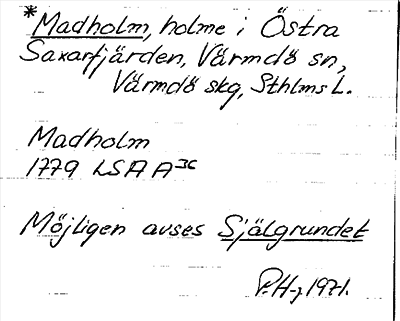 *Madholm, holme i Östra
Saxarfjärden, Värmdö sn,
Värmdö skg, Sthlms L.
Madholm
1779 LSA A
Möjligen avses Själgrundet
P.H-j 1971.